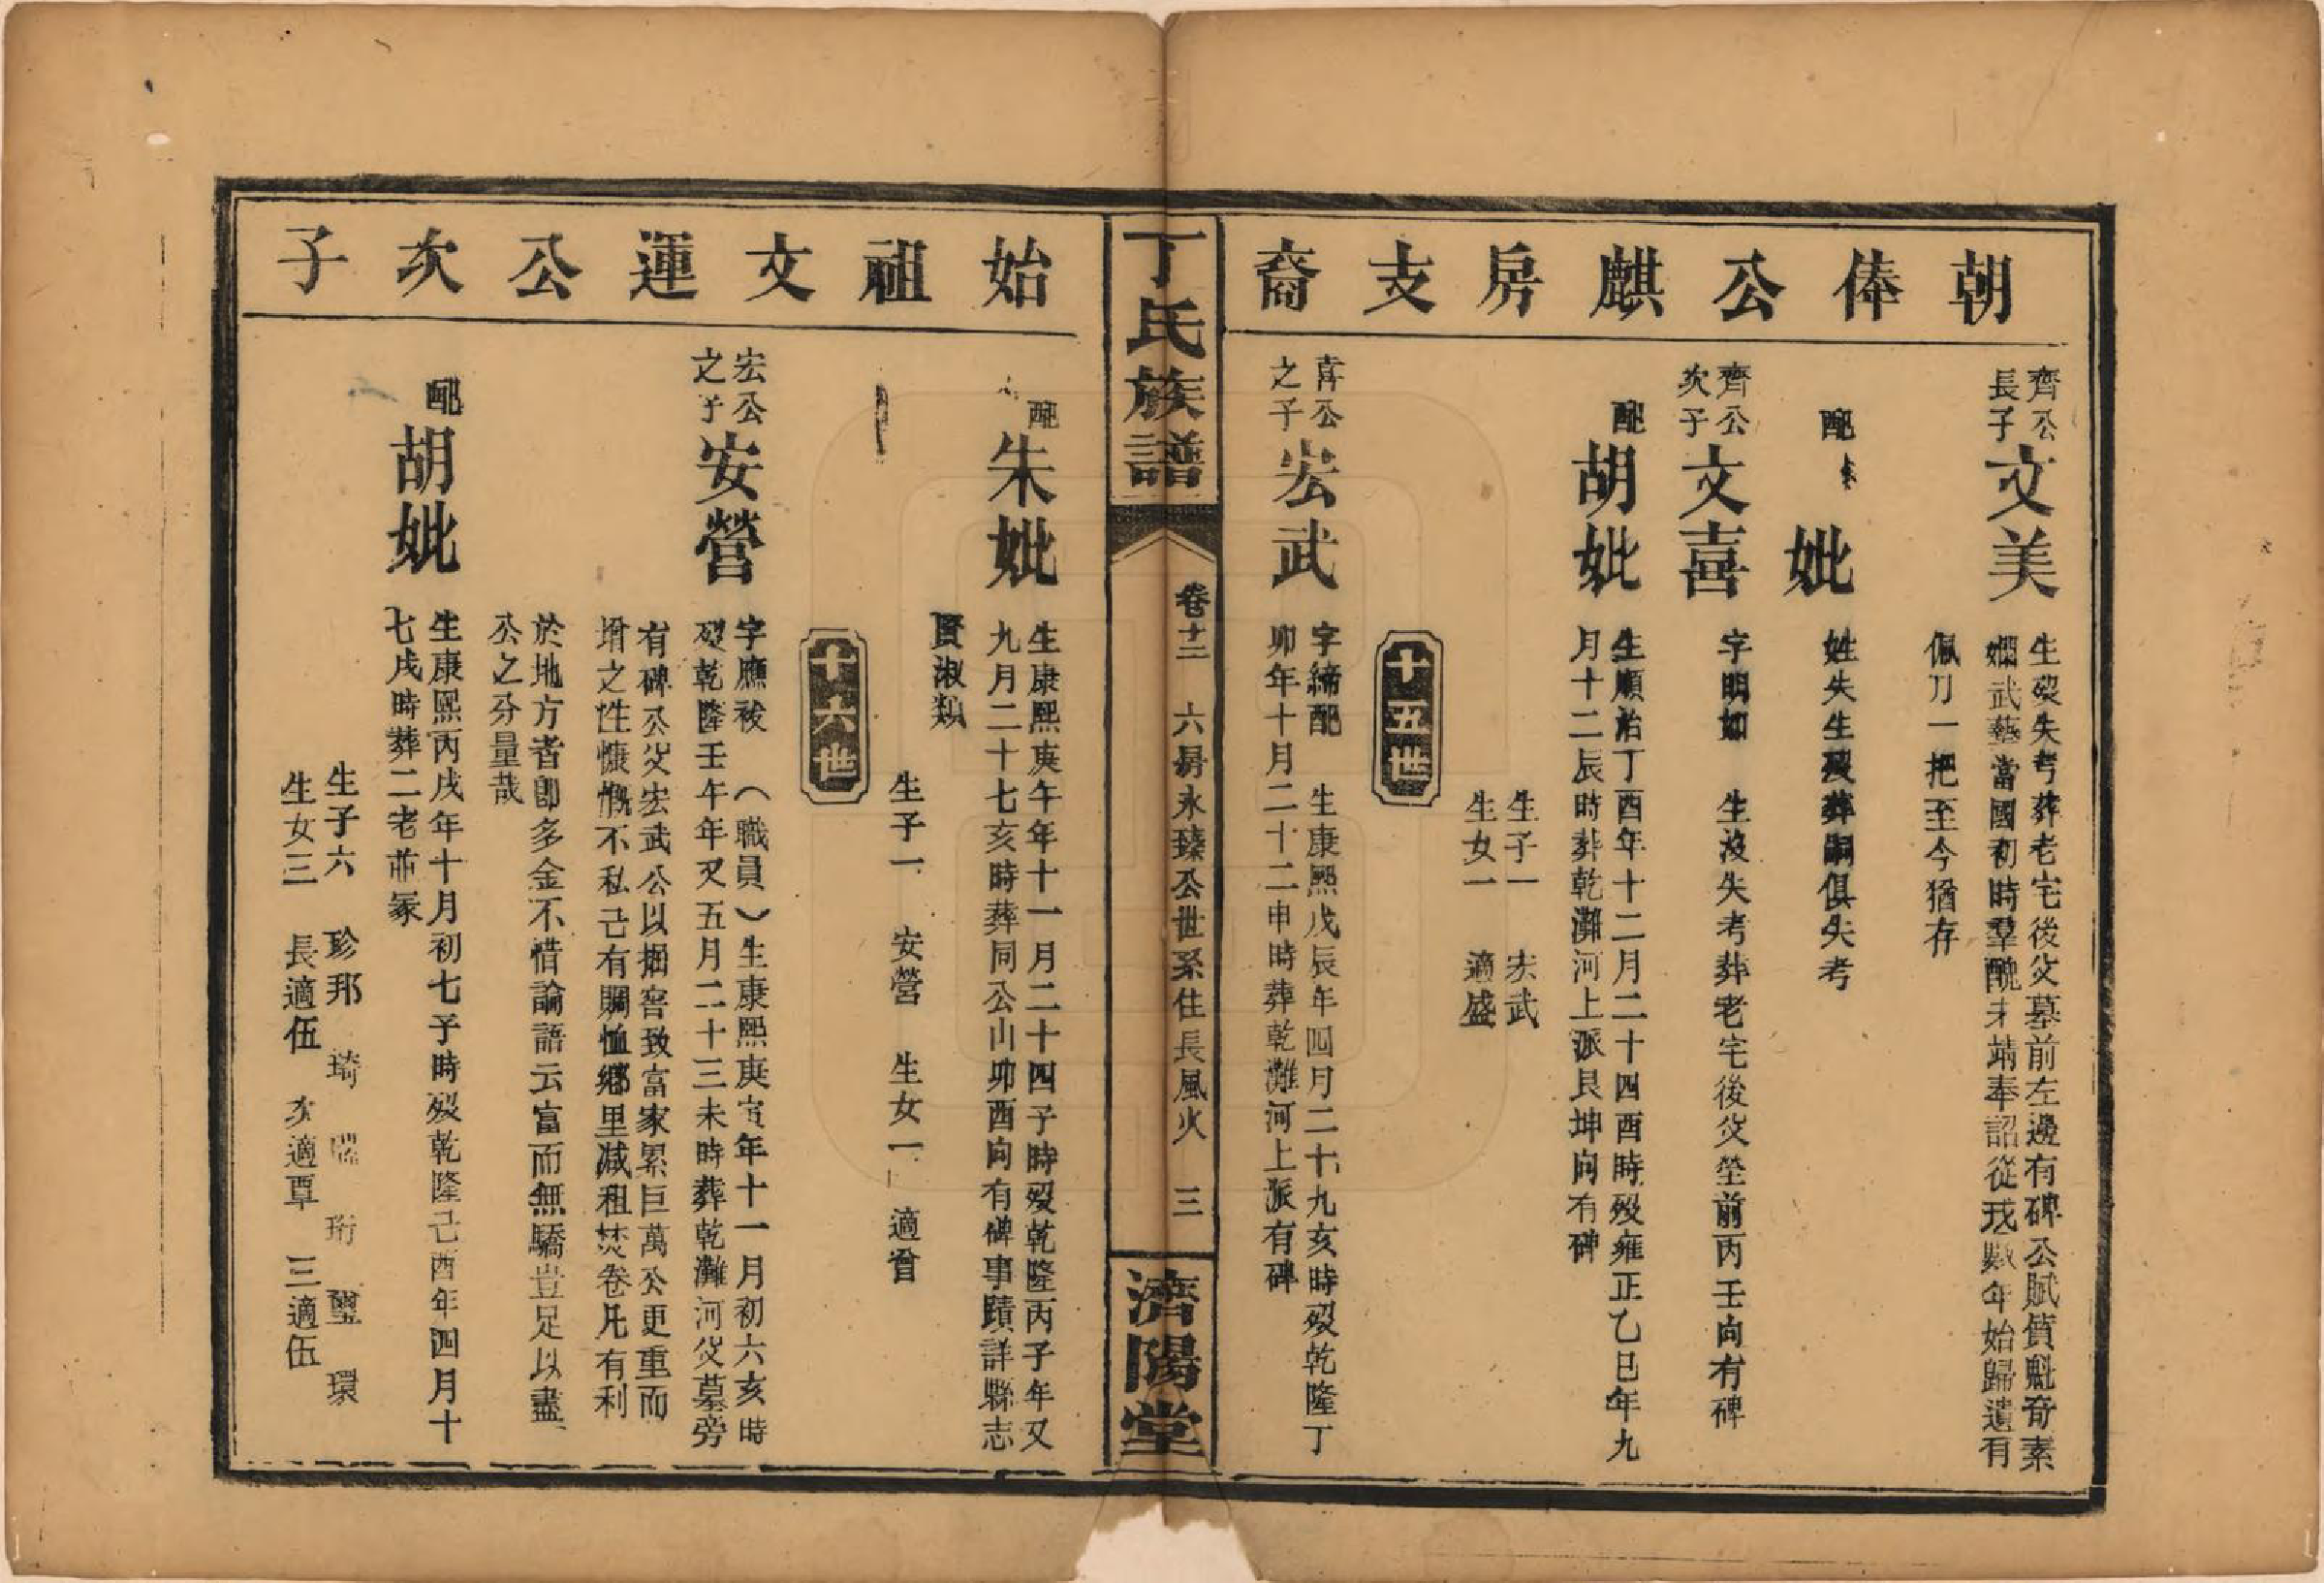 朝俸公麒房支裔
齊公長子
文美
生歿失考葬老宅後父墓前左邊有碑公賦質魁奇素
嫻武藝當國初時羣醜未靖奉詔從戎數年始歸遺有
佩刀一把至今猶存
配
妣
姓失生歿葬嗣俱失考
齊公次子
文喜
字明如 生沒失考葬老宅後父塋前丙壬向有碑
配
胡妣
生順治丁酉年十二月二十四酉時歿雍正乙巳年九
月十二辰時葬乾灘河上派艮坤向有碑
生子一 宏武
生女一 適盛
十五世
喜公之子
宏武
字締配 生康熙戊辰年四月二十九亥時歿乾隆丁
卯年十月二十二申時葬乾灘河上派有碑
丁氏族譜
卷十二 六房永臻公世系住長風火 三
濟陽堂
始祖文運公次子
配
朱妣
生康熙庚午年十一月二十四子時歿乾隆丙子年又
九月二十七亥時葬同公山卯酉向有碑事蹟詳縣志
賢淑類
生子一 安營 生女一 適曾
十六世
宏公之子
安營
字應祓 (職員)生康熙庚寅年十一月初六亥時
歿乾隆壬午年又五月二十三未時葬乾灘河父墓旁
有碑公父宏武公以掘窖致富家累巨萬公更重而
增之性慷慨不私己有賙恤鄉里減租焚卷凡有利
於地方者卽多金不惜論語云富而無驕豈足以盡
公之分量哉
配
胡妣
生康熙丙戌年十月初七子時歿乾隆己酉年四月十
七戌時葬二老茔冢
生子六 珍邦 琦 珩 璽 環
生女三 長適伍 次適覃 三適伍